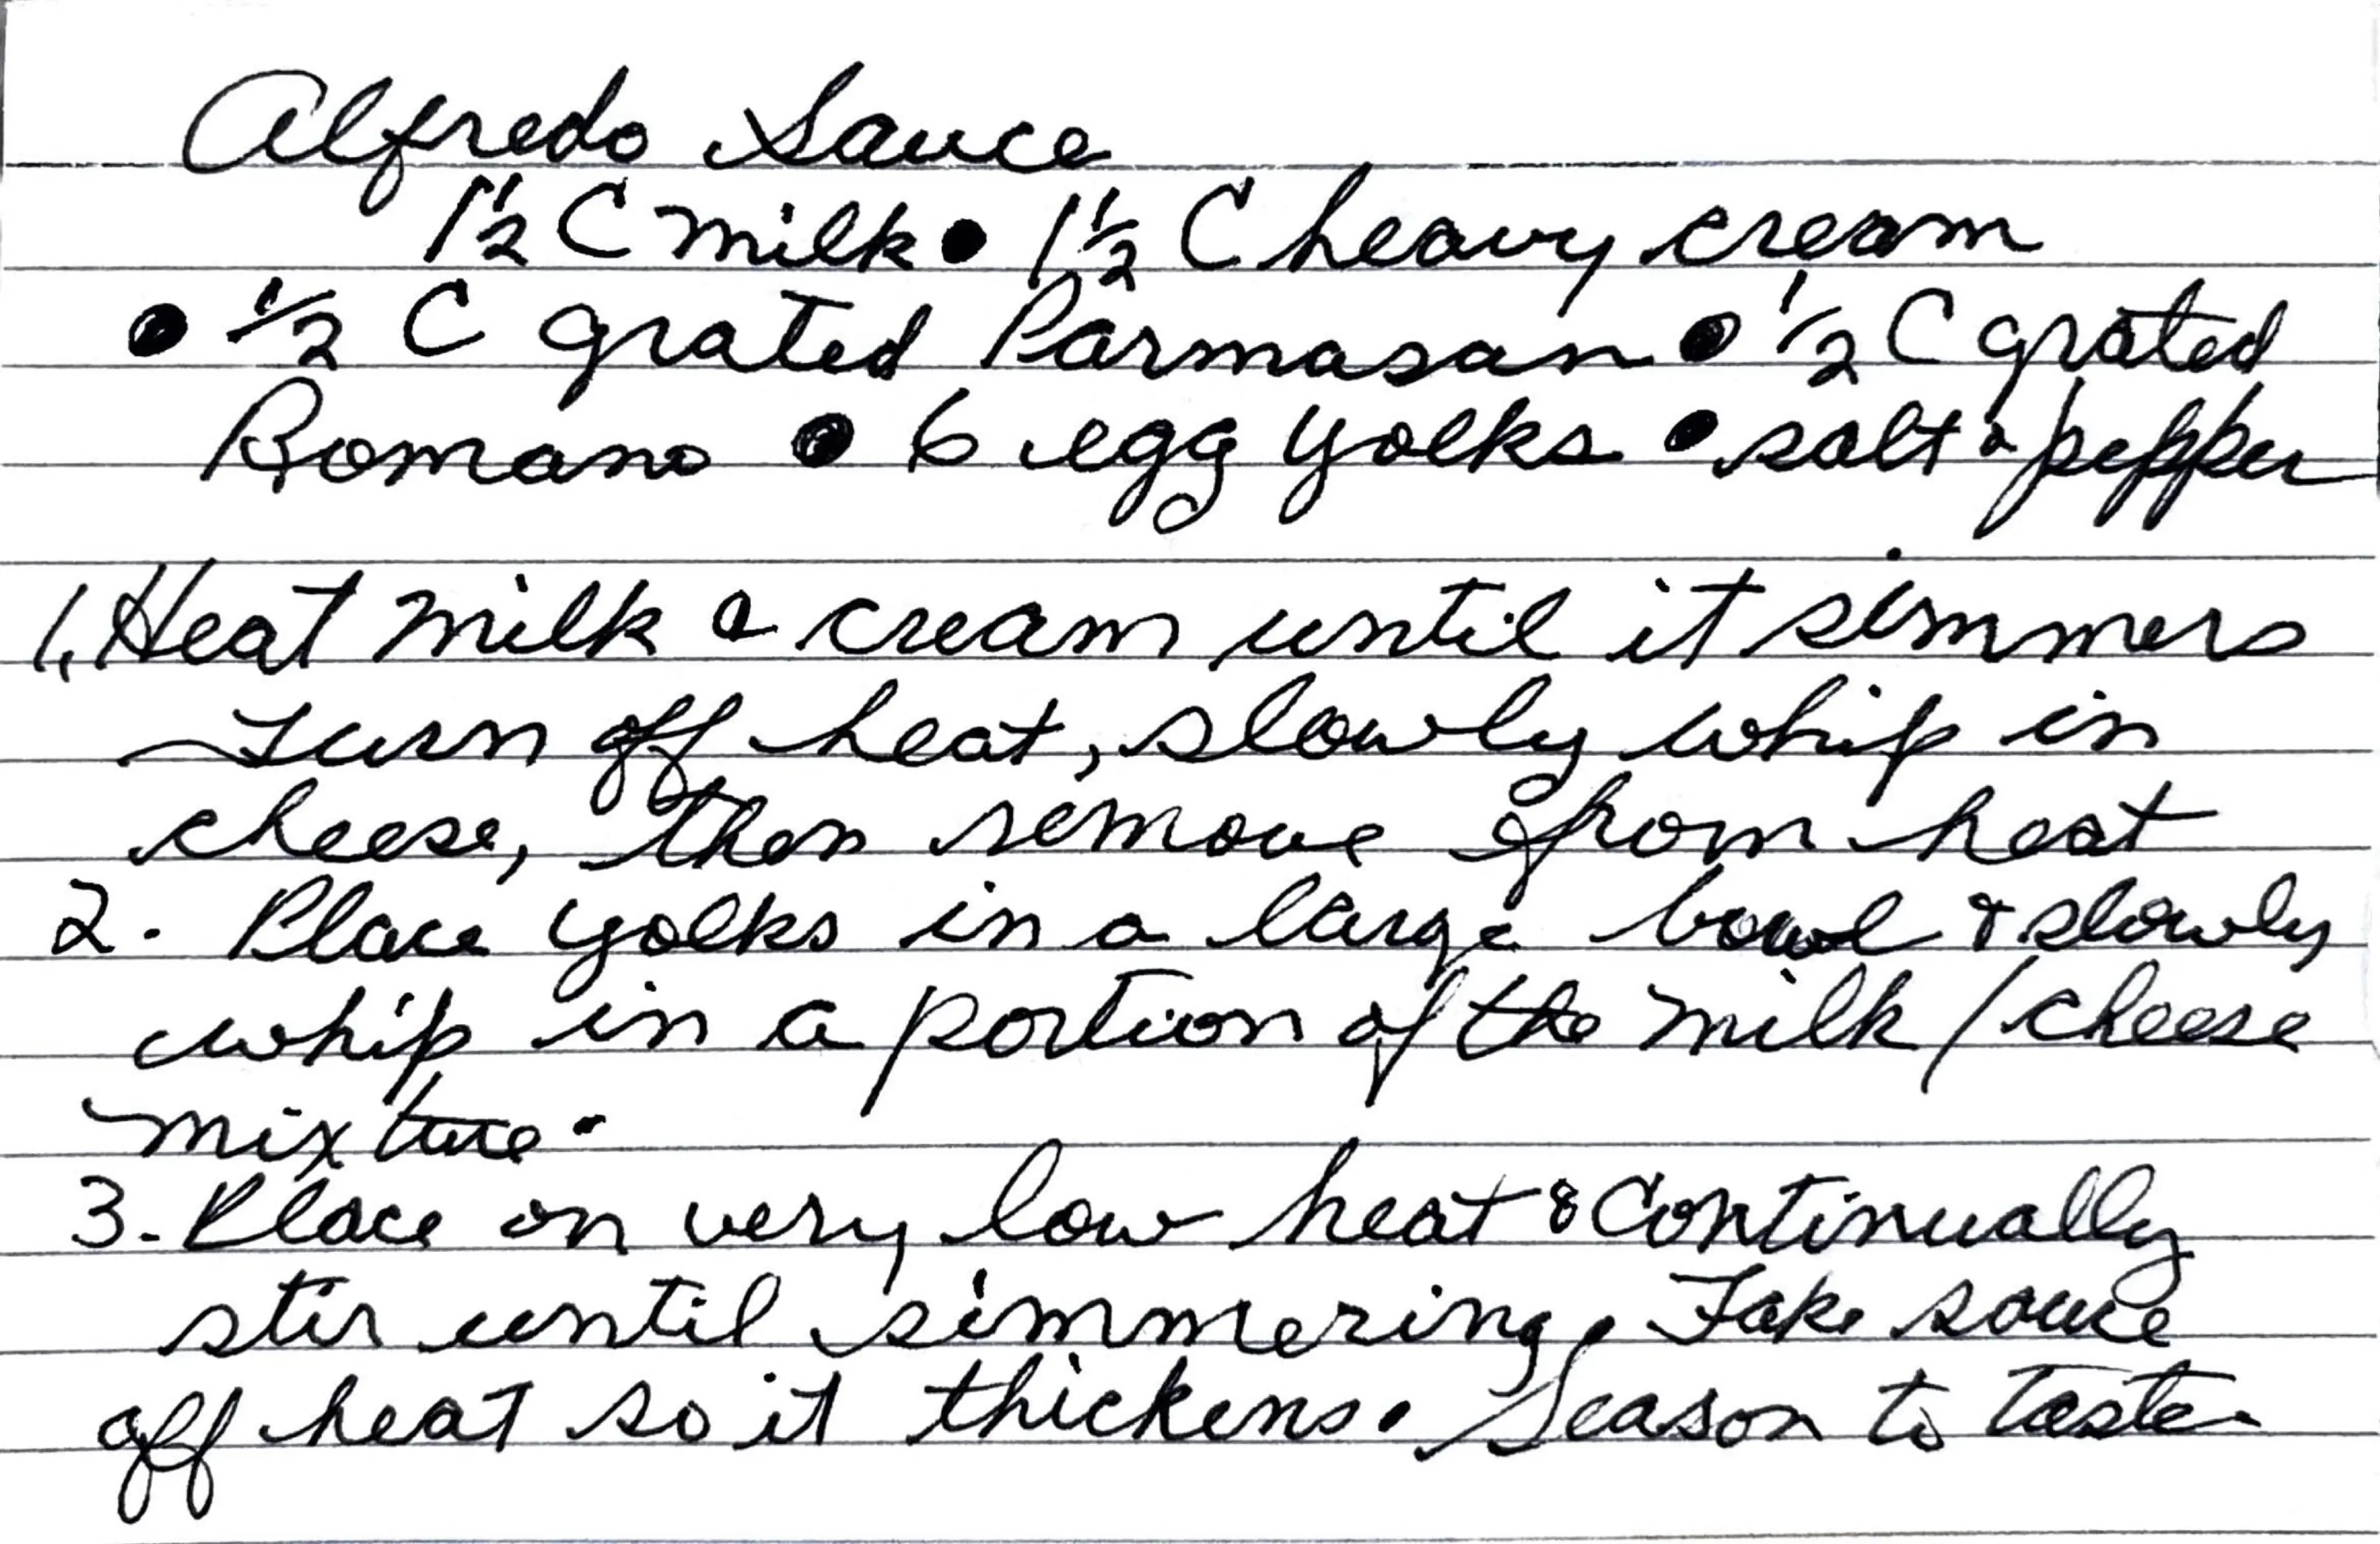 Alfredo Sauce
1½ C milk • 1½ C heavy cream
• ½ C grated Parmasan • ½ C grated
Romano • 6 egg yolks • salt & pepper
1. Heat milk & cream until it simmers
turn off heat, slowly whip in
cheese, then remove from heat
2. Place yolks in a large bowl & slowly
whip in a portion of the milk / cheese
mixture.
3. Place on very low heat & Continually
stir until simmering. Take sauce
off heat so it thickens. Season to taste.